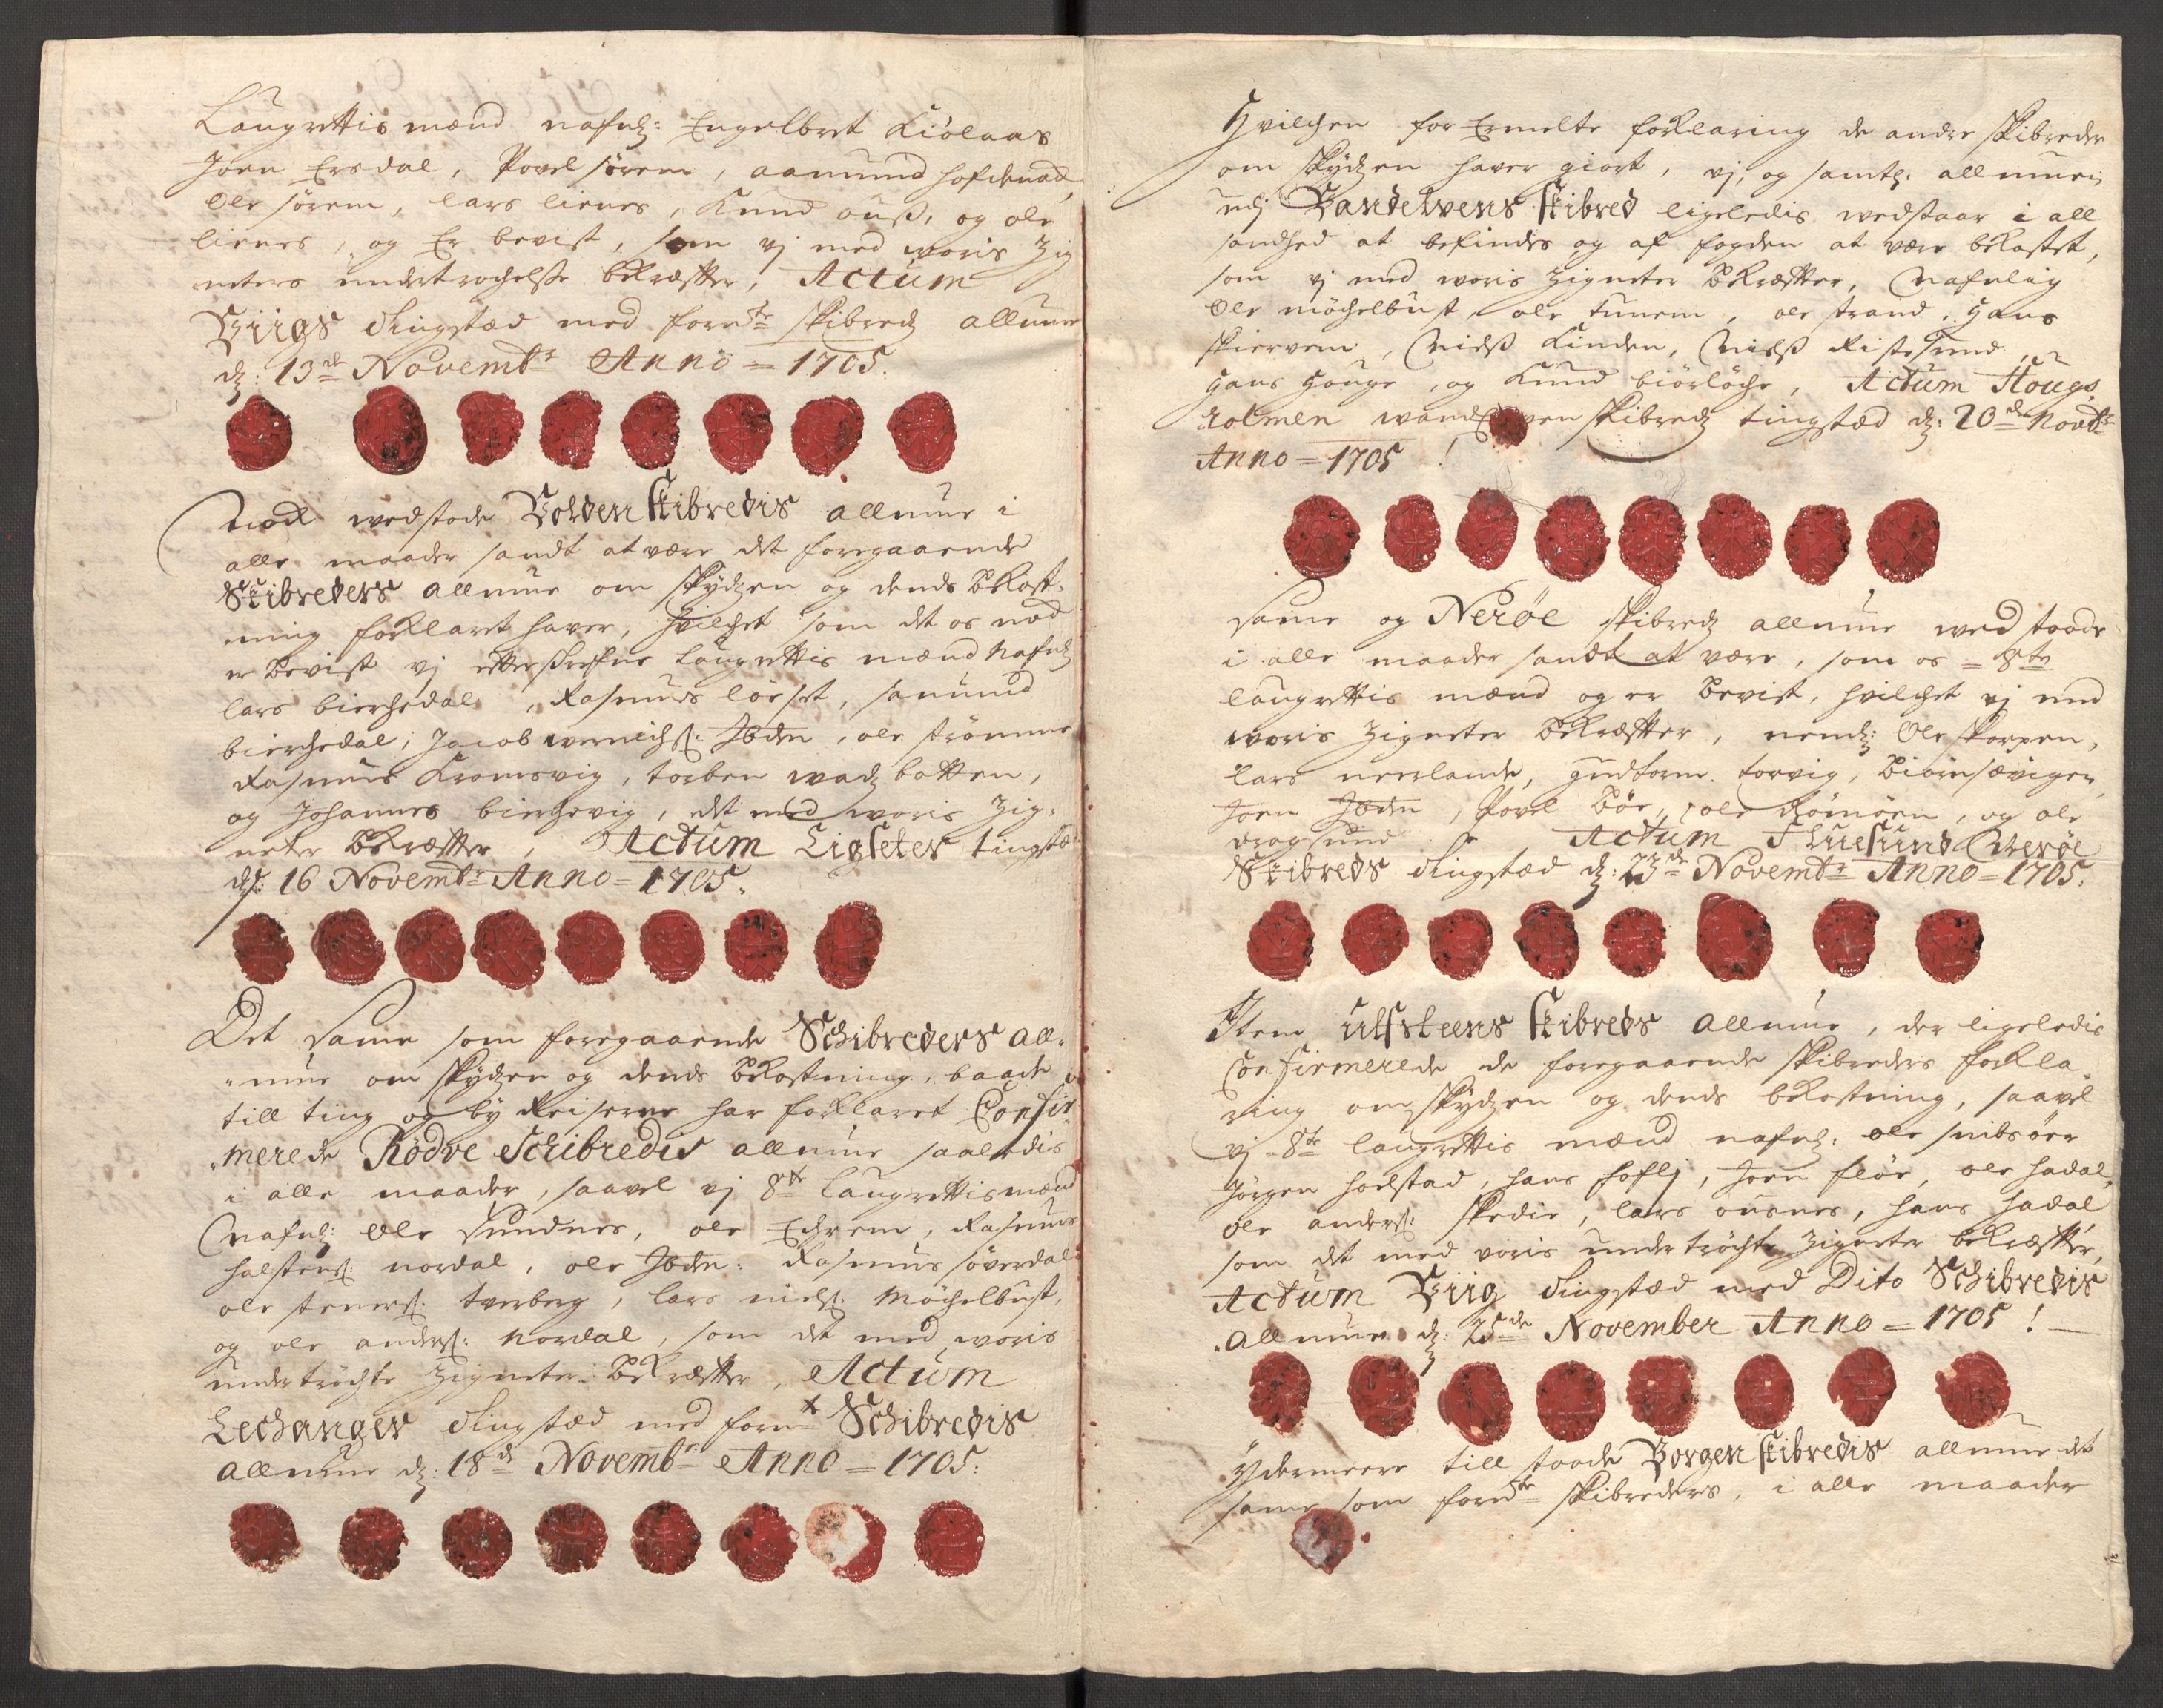 Laugrettis mænd nafnl: Engelbret Kiólaas
Joen Ersdal, Povel sørem, aamund hofdenad
Ole sørem, lars lienes, Knud auß, og ole
lienes, og Er bevist, som vj med woris Zig
neters undertrøchelse bekræffter, Actum
Viigs tingstæd med forn:te skibredz allmue
dz: 13de Novembr Anno = 1705.
Nock wedstode Volden skibredis allmue i
alle maader sandt at være det foregaaende
Skibreders allmue om skydzen og dends bekost-
ning forklaret haver, hvilchet som det os nod
er bevist vj effterskrefne laugrettis mænd Nafnl
lars bierchedal, Rasmus löeset, samund
bierchedal, Jacob wernichs: Ibdn, ole strömme
Rasmus Kromsvig, torben wadz botten,
og Johannes birchevig, det med woris Zig-
neter bekræffter, Actum Ligseter tingstæd
dz: 16 Novembr Anno = 1705.
Det same som foregaaende Schibreders all-
mue om skydzen og dends bekostning, baade
till ting og by Reiserne har forklaret Confir
merede Rödve Schibredis allmue saaledis
i alle maader, saavel vj 8te laugrettismænd
Nafnl: Ole Sundnes, ole Echrem, Rasmus
halstens: nordal, ole Ibdn: Rasmus söverdal
ole steners: tverberg, lars niels: Möchelbust,
og ole anders: Nordal, som det med woris
undertröchte Zigneter bekræffter, Actum
Lechanger tingstæd med forn:t Schibredis
allmue dz: 18de Novembr Anno = 1705:
Hvilchen for Ermelte forklaring de andre skibreder
om skydzen haver giort, vj, og samtl: allmuen
udj Vandelvens skibred ligeledis wedstaar i all
sandhed at befindes og af fogden at være bekostet,
som vj med woris Zigneter bekræffter, Nafnlig
Ole möchelbust, ole tunem, ole strand, Hans
skiervem, Nielß Linden, Nielß Ristesund,
Hans Houge, og Knud biörlöche, Actum Hougs
Holmen wandelven skibredz tingstæd dz: 20de Novbr
Anno = 1705 !
Same og Nerøe skibredz allmue wed stoode
i alle maader sandt at være, som os = 8te
laugrettis mænd og er bevist, hvilchet vj med
woris Zigneter bekræffter, nemdl: Ole skorpen,
lars neerlande, Gudtorm torvig, biörn sæviger
Joen Ibdn, Povel böe, ole Römöen, og ole
dragsund Actum Fluesund Nerøe
Skibreds tingstæd dz: 23de Novembr Anno = 1705:
Item Ulfsteens skibreds allmue, der ligeledis
Confirmerede de foregaaende skibreders forkla-
ring om skydzen og dends bekostning, saavel
vj = 8te laugrettis mænd nafnl: ole snibsöer
Jörgen hoelstad, hans hoflj, Joen flöe, ole hadal,
ole anders: skedie, lars ousnes, hans hadal
som det med woris undertröchte Zigneter bekræffter,
Actum Viig tingstæd med Dito Schibredis
allmue dz: 25de November Anno = 1705 !
Ydermeere till stoode Borgen skibredis allmue det
same som forn:te skibreders, i alle maader